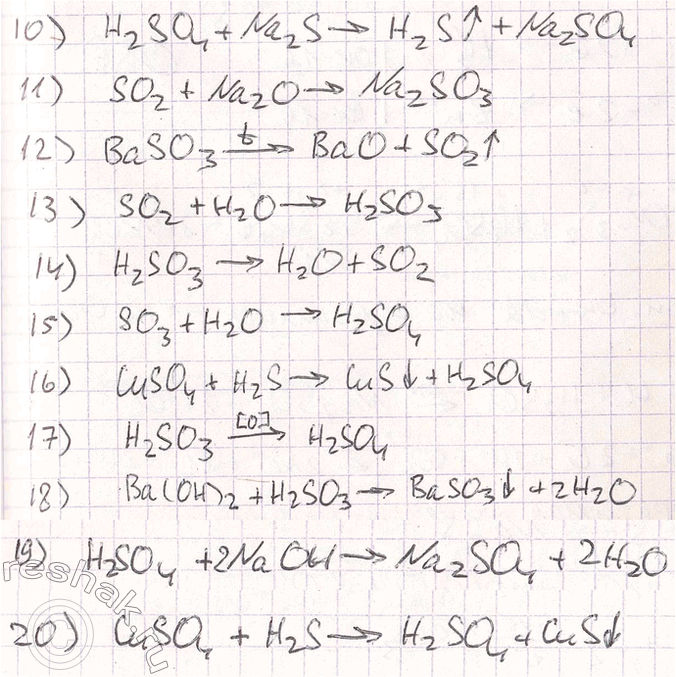 10) H₂SO₄ + Na₂S → H₂S↑ + Na₂SO₄
11) SO₂ + Na₂O → Na₂SO₃
12) BaSO₃ →t BaO + SO₂↑
13) SO₂ + H₂O → H₂SO₃
14) H₂SO₃ → H₂O + SO₂
15) SO₃ + H₂O → H₂SO₄
16) CuSO₄ + H₂S → CuS↓ + H₂SO₄
17) H₂SO₃ →[O] H₂SO₄
18) Ba(OH)₂ + H₂SO₃ → BaSO₃↓ + 2H₂O
19) H₂SO₄ + 2NaOH → Na₂SO₄ + 2H₂O
20) CuSO₄ + H₂S → H₂SO₄ + CuS↓
reshak.ru